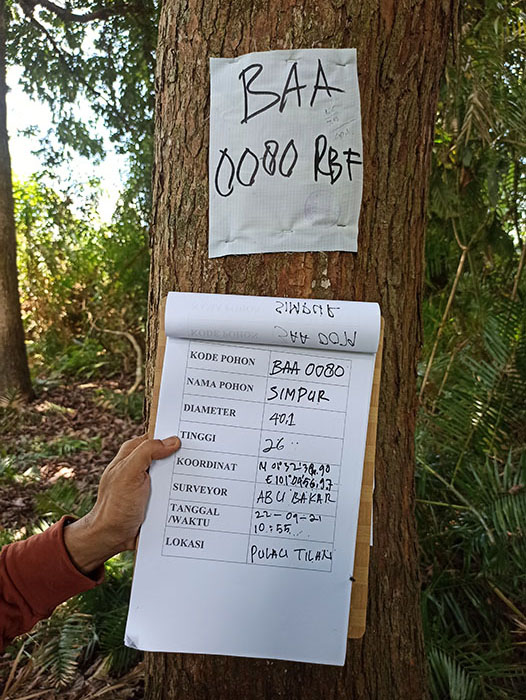 BAA
0080 RBF
KODE POHON BAA 0080
NAMA POHON SIMPUR
DIAMETER 40.1
TINGGI 26
KOORDINAT
SURVEYOR ABU BAKAR
TANGGAL /WAKTU 22-09-21
10:55
LOKASI PULAU TILAN